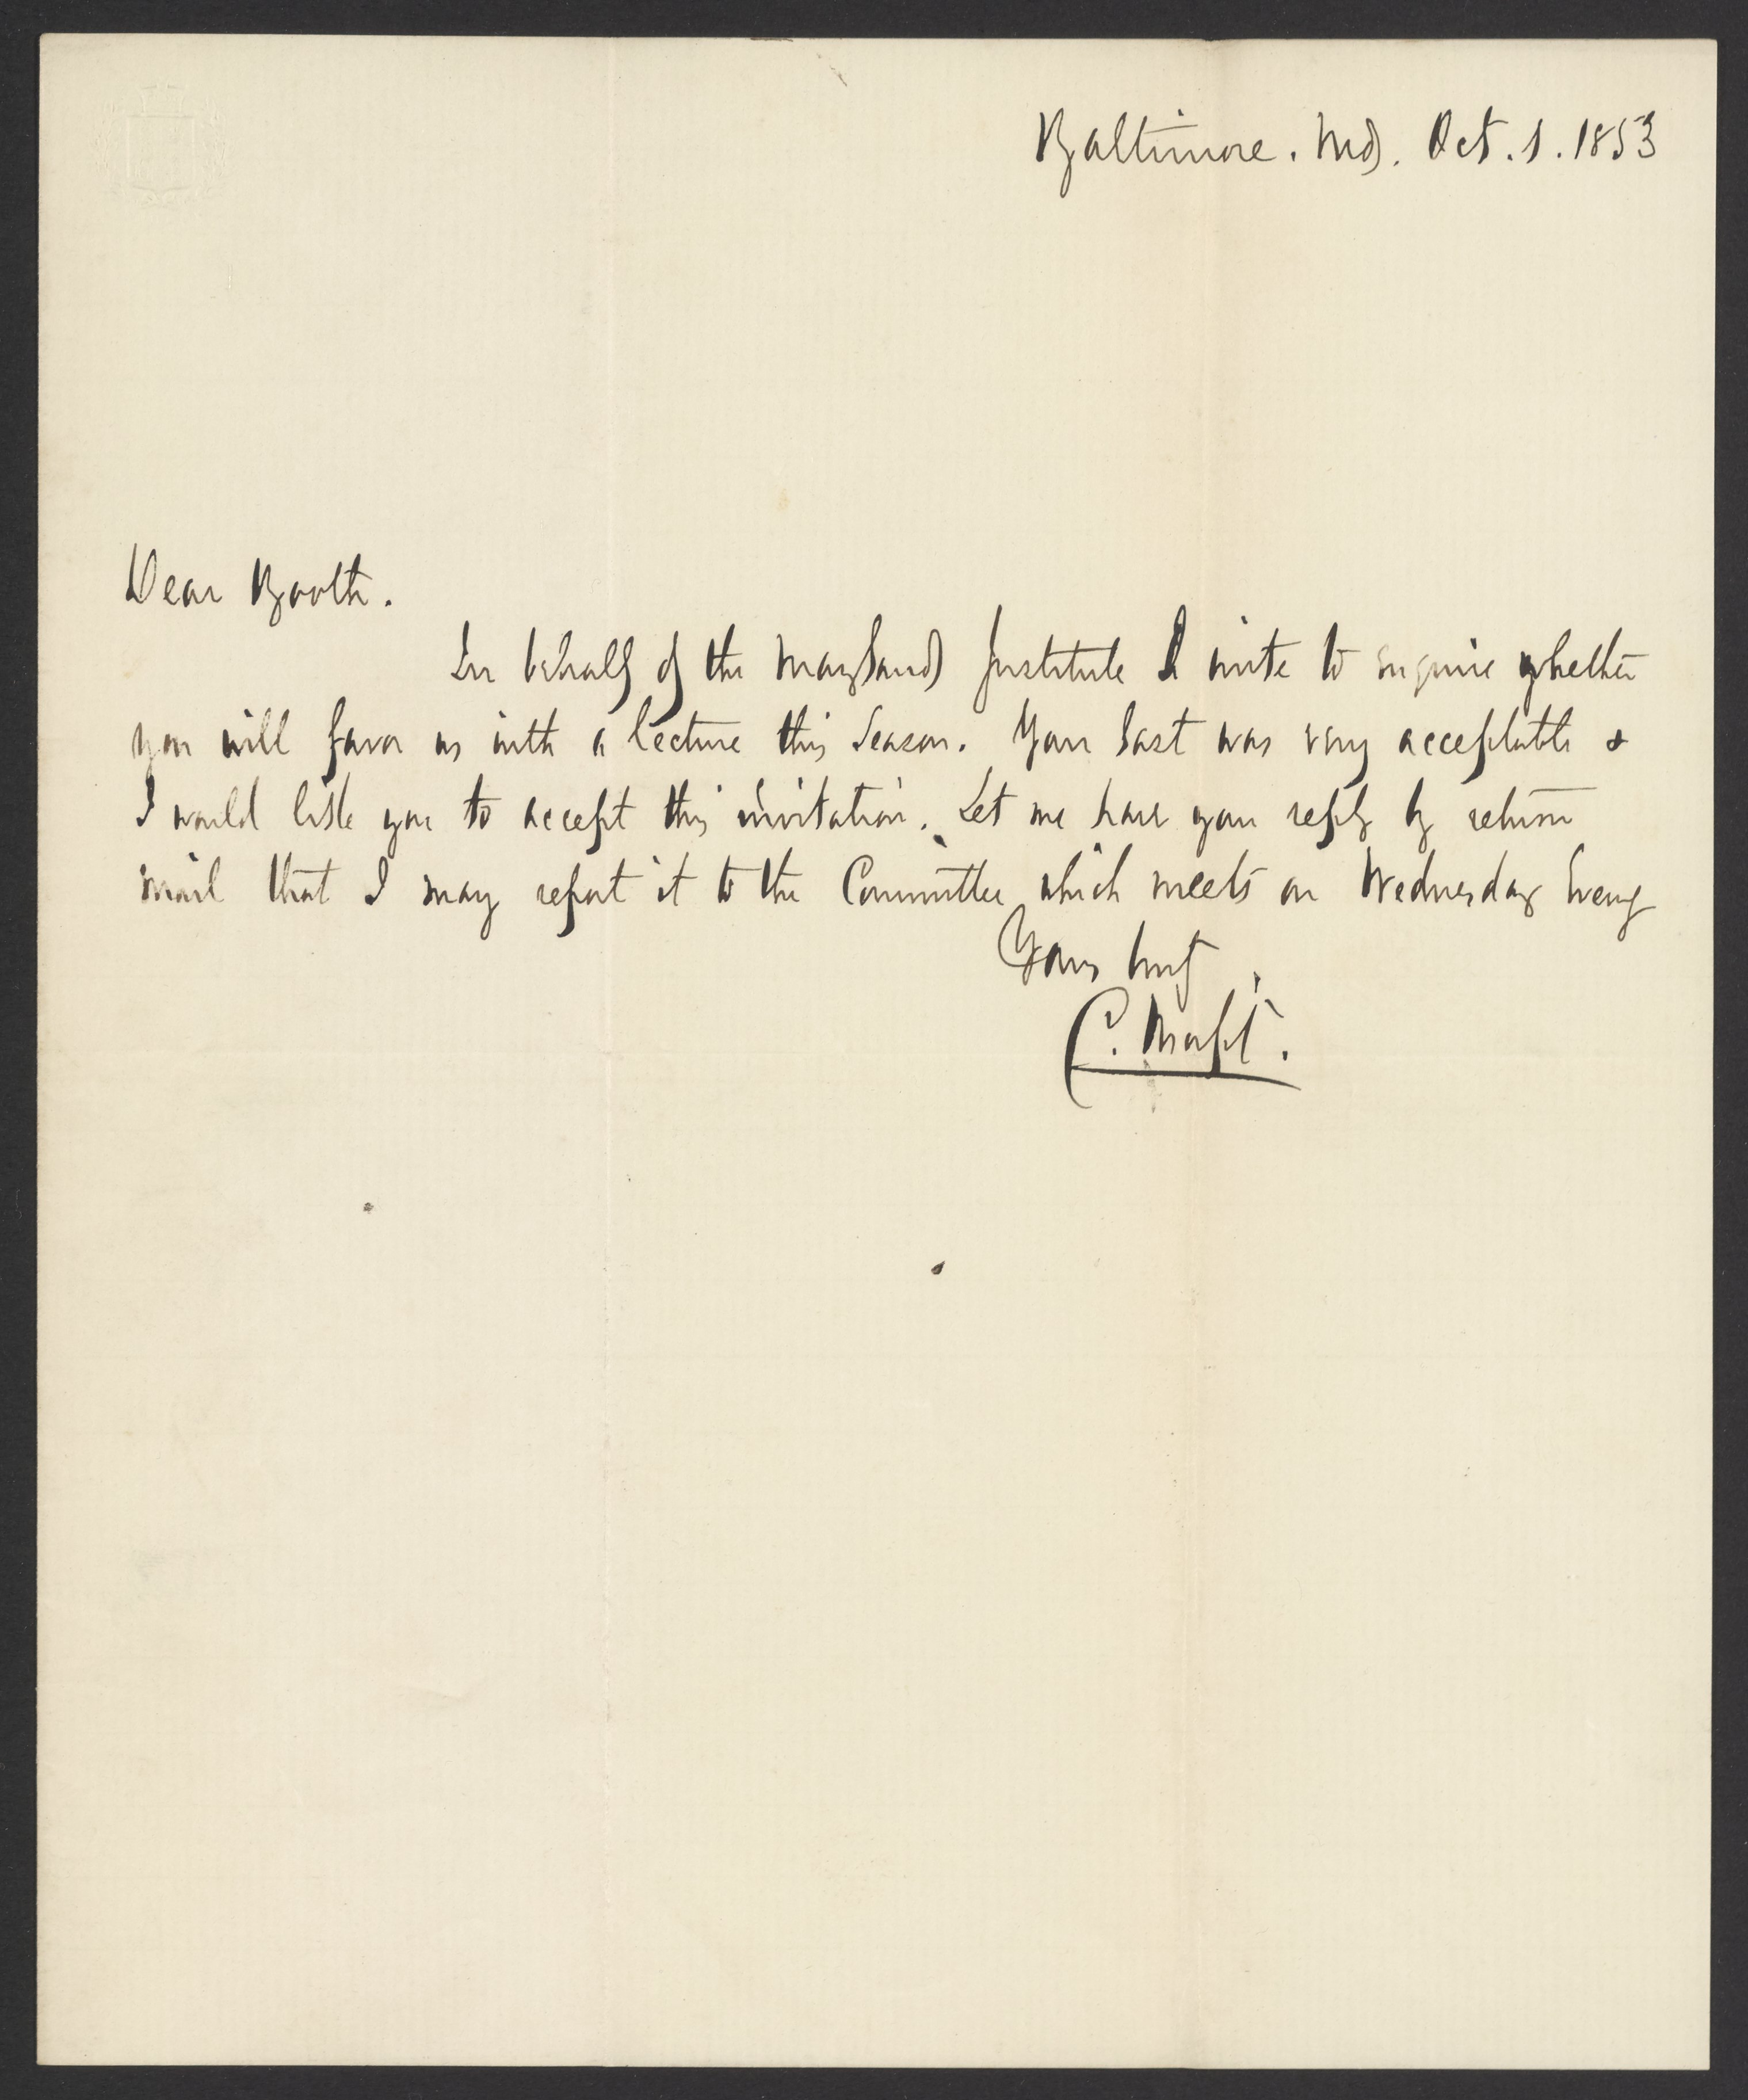 Baltimore. Md. Oct. 1. 1853
Dear Booth.
In behalf of the Maryland Institute I write to inquire whether
you will favor us with a lecture this season. Your last was very acceptable &
I would like you to accept this invitation. Let me have your reply by return
mail that I may report it to the Committee which meets on Wednesday Eveng
Yours
C. Morfit.